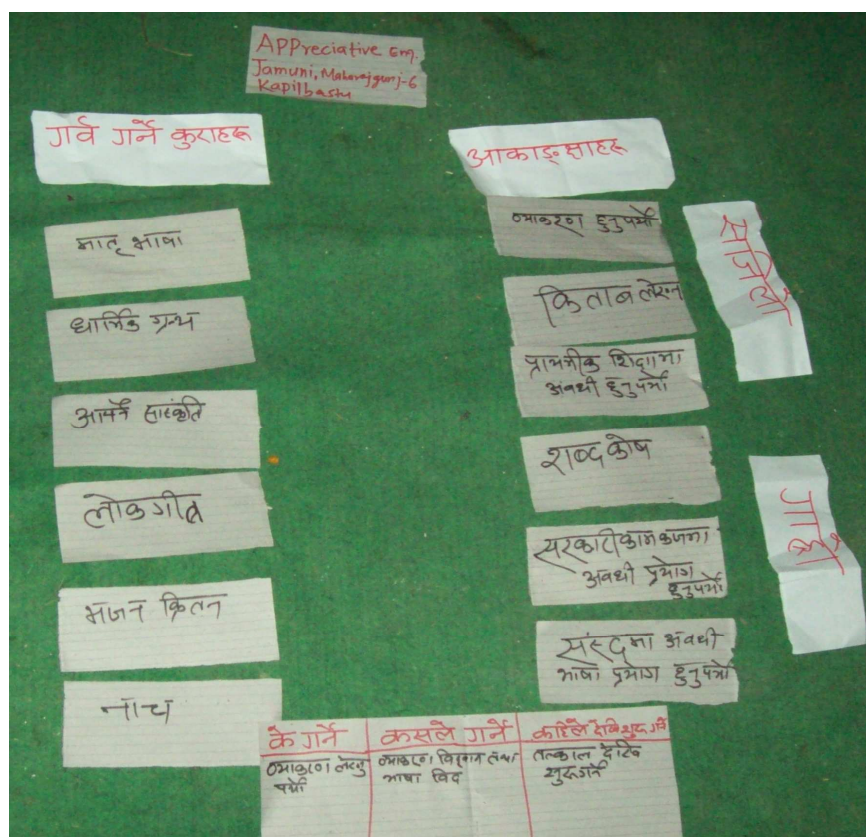 APPreciative Enq.
Jamuni, Maharajgunj-6
Kapilbastu
गर्व गर्ने कुराहरू
मातृ भाषा
धार्मिक ग्रन्थ
आफ्नै सास्कृति
लोकगीत
भजन क्रितन
नाच
आकाङ्क्षाहरू
व्याकरण हुनुपर्यो
किताब लेख्न
प्राथमीक शिक्षामा
अवधी हुनुपर्यो
शब्द कोष
सरकारी कामकाजमा
अवधी प्रयोग
हुनुपर्यो
संसदमा अवधी
भाषा प्रयोग हुनुपर्यो
सजिलो
गाह्रो
के गर्ने
कसले गर्ने
कहिले देखि शुरू गर्ने
व्याकरण लेख्नु
पर्यो
व्याकरण विद्वान तथा
भाषा विद
तत्काल देखि
शुरू गर्ने